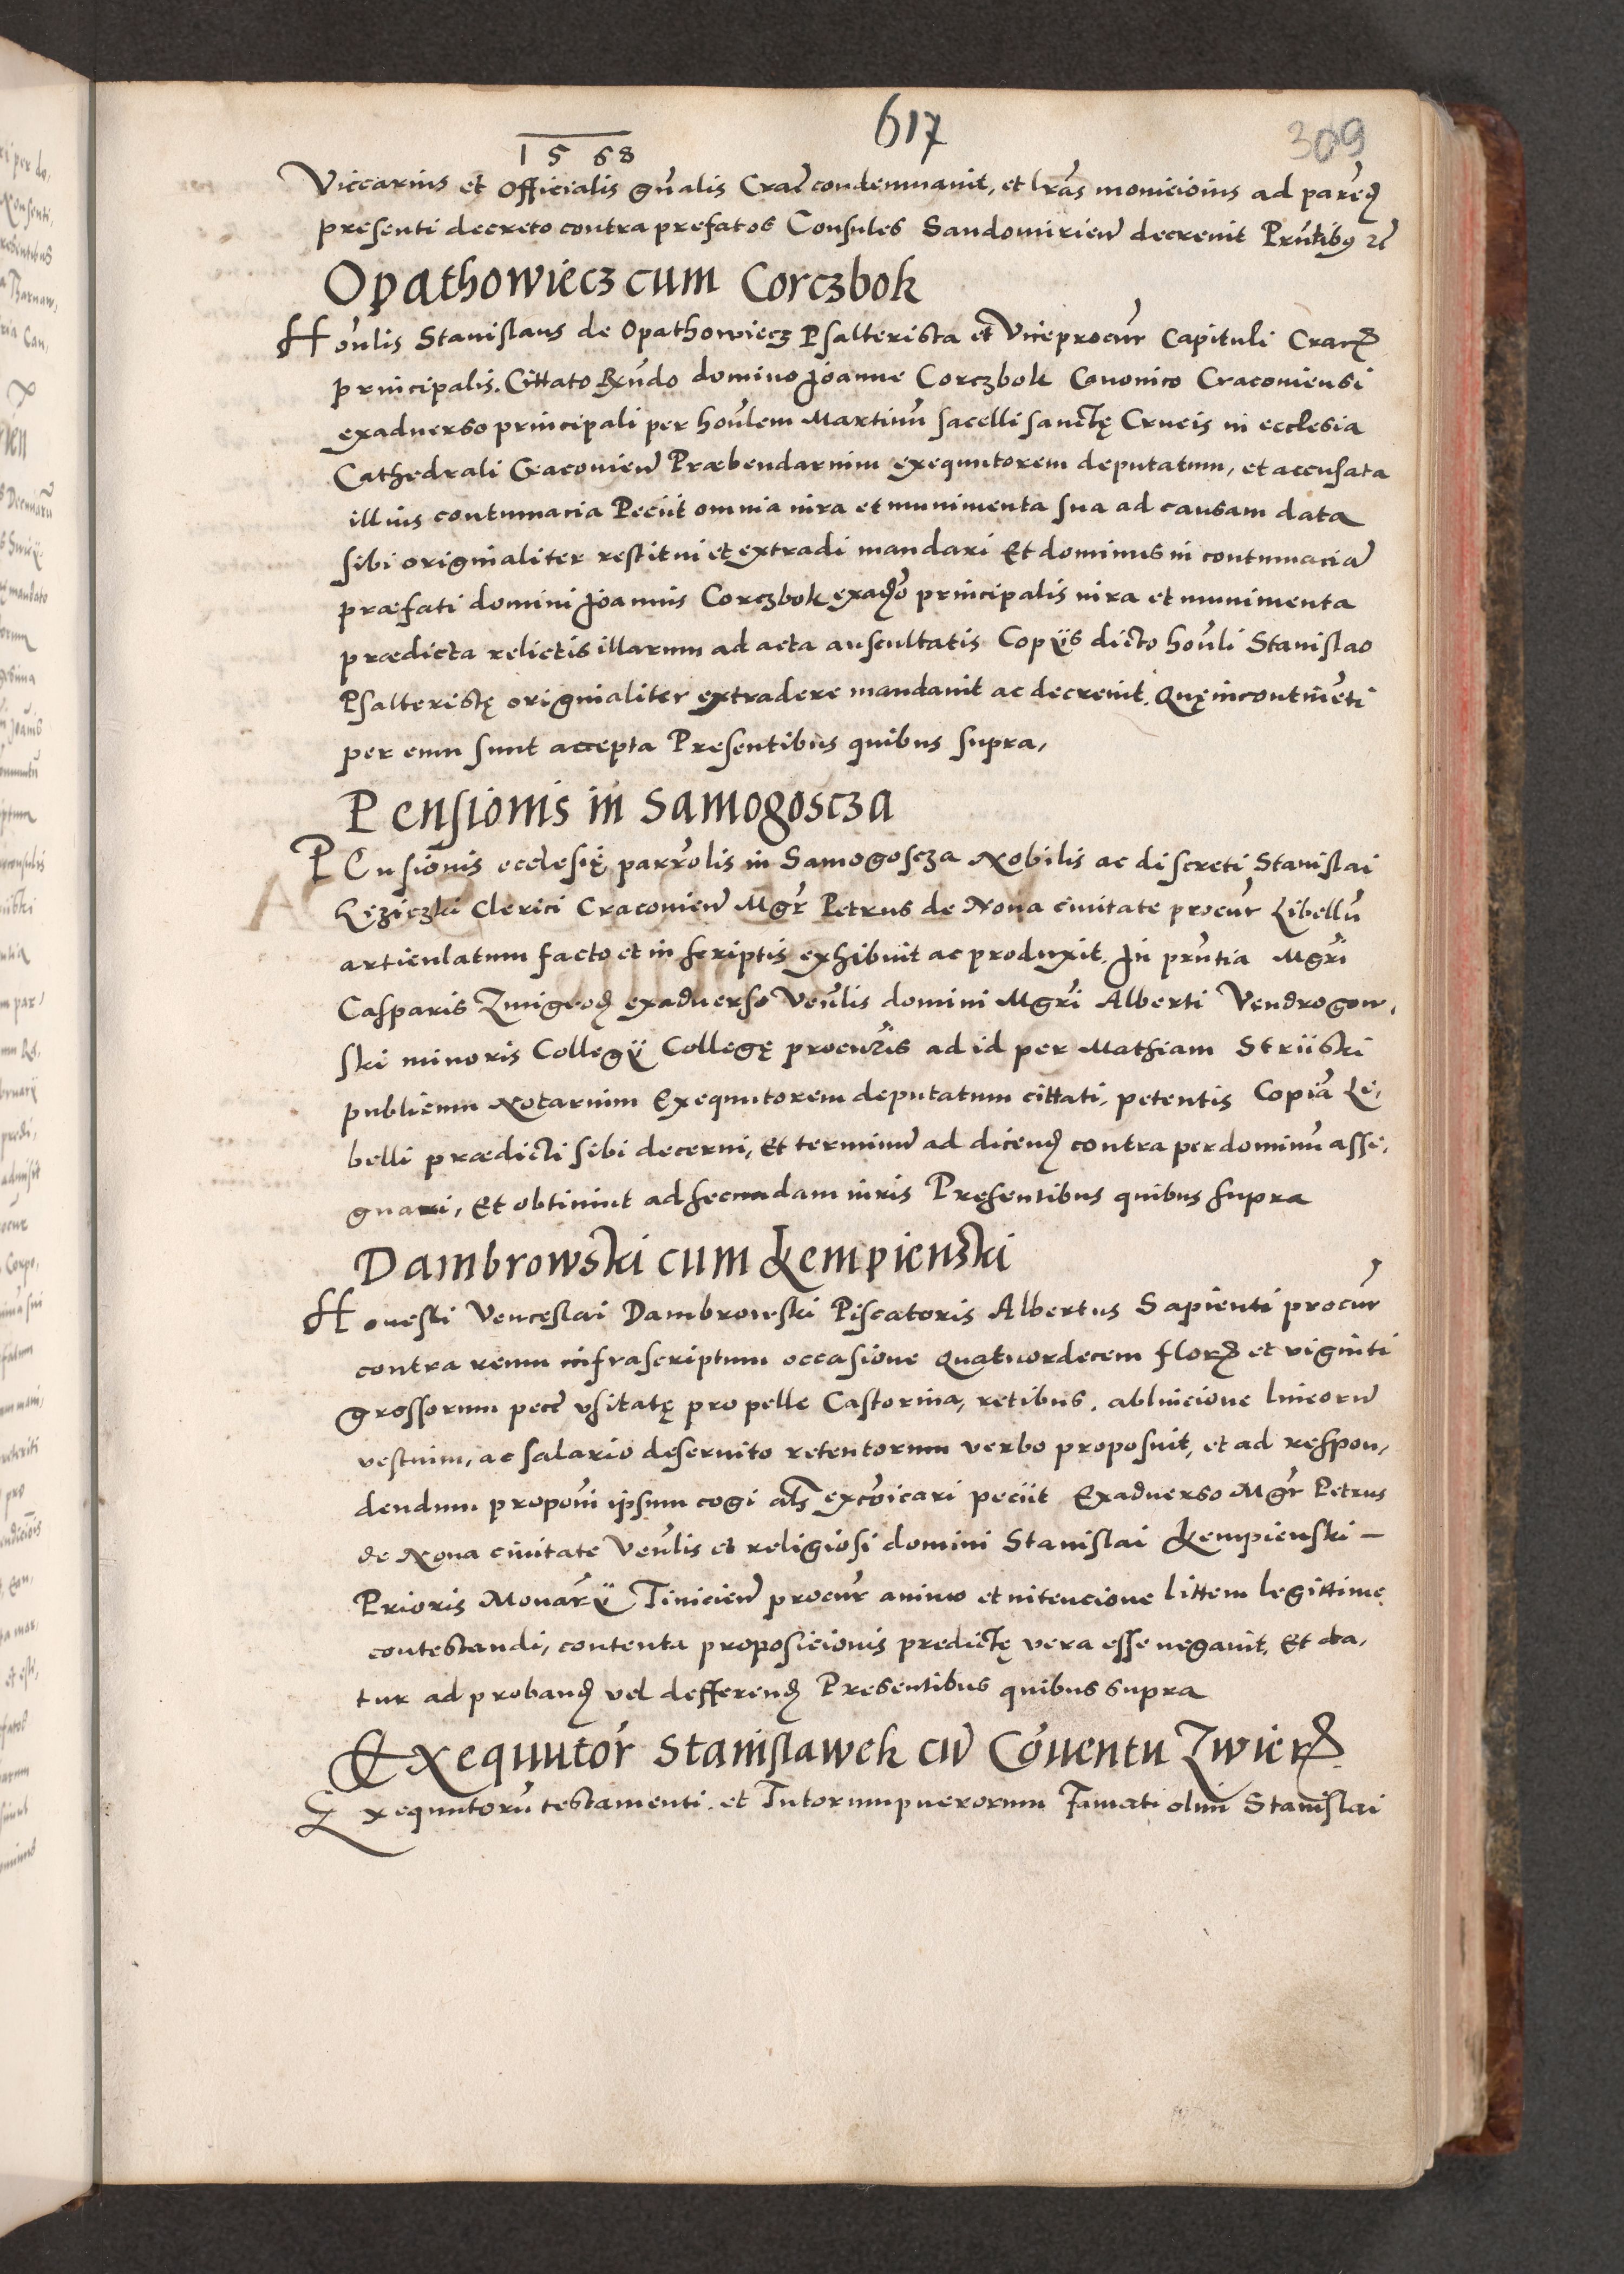 617
309
1568
Viccarius et Officialis gn̄alis Crac̄ condemnauit, et lr̄as monicionis ad parēd
presenti decreto contra prefatos Consules Sandomirieñ decreuit Prn̄tibꝫ ꝛc̄
Opathowiecz cum Corczbok
Hon̄lis Stanislaus de Opathowiecz Psalterista et Viceprocur̄ Capituli Crac̄
principalis. Cittato Rn̄do domino Joanne Corczbok Canonico Cracouiensi
exaduerso principali per hon̄lem Martinū sacelli sanctę Crucis in ecclesia
Cathedrali Cracouień Præbendarium exequutorem deputatum, et accusata
illius contumacia Peciit omnia iura et munimenta sua ad causam data
sibi originaliter restitui et extradi mandari Et dominus in contumaciā
præfati domini Joannis Corczbok exad̄so principalis iura et munimenta
prædicta relictis illarum ad acta auscultatis Copÿs dicto hon̄li Stanislao
Psalteristę originaliter extradere mandauit ac decreuit. Quę incontinēti
per eum sunt accepta Presentibus quibus supra,
Pensionis in Samogoscza
PEnsionis ecclesię parr̄olis in Samogoscza Nobilis ac discreti Stanislai
Clerici Cracouień Mgr̄ Petrus de Noua ciuitate procur̄ Libellū
articulatum facto et in scriptis exhibuit ac produxit. In prn̄tia Mgr̄i
Casparis Zmigrod exaduerso Ven̄lis domini Mgr̄i Alberti Vendrogow,
ski minoris Collegÿ Collegę procur̄is ad id per Mathiam Striiski
publicum Notarium Exequutorem deputatum cittati, petentis Copiā Li,
belli prædicti sibi decerni, Et terminū ad dicend contra per dominū assi,
gnari, Et obtinuit ad secundam iuris Presentibus quibus supra
Dambrowski cum Kempienski
Honesti Venceslai Dambrowski Piscatoris Albertus Sapienti procur̄
contra reum infrascriptum occasione quatuordecem flor et viginti
grossorum pecc̄ vsitatę pro pelle Castorina, retibus, ablucione lineorū
vestium, ac salario deseruito retentorum verbo proposuit, et ad respon,
dendum proponi ipsum cogi als̄ excōicari peciit Exaduerso Mgr̄ Petrus
de Noua ciuitate Ven̄lis et religiosi domini Stanislai Kempienski –
Prioris Monar̄ÿ Tinicień procur̄ animo et intencione littem legittime
contestandi, contenta proposicionis predictę vera esse negauit, Et da,
tur ad proband vel defferend Presentibus quibus supra
Exequutor̄ Stanislawek cū Cōuentu Zwier
Exequutorū testamenti, et Tutorum puerorum Famati olim Stanislai